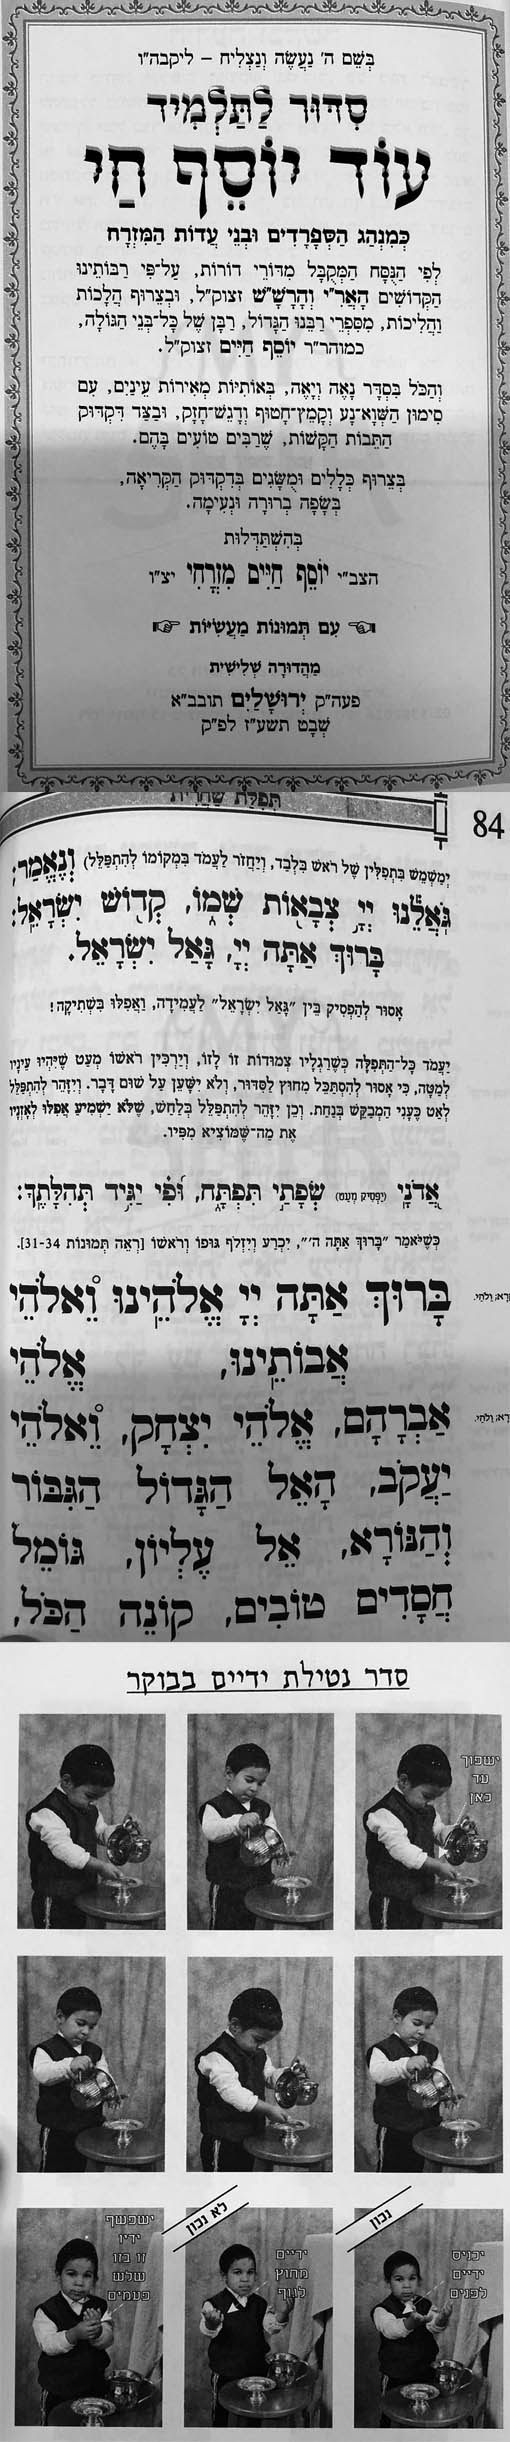 בְּשֵׁם ה' נַעֲשֶׂה וְנַצְלִיחַ – ליקבה"ו
סִדּוּר לַתַּלְמִיד
עוֹד יוֹסֵף חַי
כְּמִנְהַג הַסְּפָרַדִּים וּבְנֵי עֲדוֹת הַמִּזְרָח
לְפִי הַנֻּסָּח הַמְּקֻבָּל מִדּוֹרֵי דוֹרוֹת, עַל־פִּי רַבּוֹתֵינוּ
הַקְּדוֹשִׁים הָאֲרִ"י וְהָרַשַׁ"שׁ זצוק"ל, וּבְצֵרוּף הֲלָכוֹת
וַהֲלִיכוֹת, מִסִּפְרֵי רַבֵּנוּ הַגָּדוֹל, רַבָּן שֶׁל כָּל־בְּנֵי הַגּוֹלָה,
כמוהר"ר יוֹסֵף חַיִּים זצוק"ל.
וְהַכֹּל בְּסֵדֶר נָאֶה וְיָאֶה, בְּאוֹתִיּוֹת מְאִירוֹת עֵינַיִם, עִם
סִימוּן הַשְּׁוָא־נָע וְקָמֵץ־חָטוּף וְדָגֵשׁ־חָזָק, וּבְצַד דִּקְדּוּק
הַתֵּבוֹת הַקָּשׁוֹת, שֶׁרַבִּים טוֹעִים בָּהֶם.
בְּצֵרוּף כְּלָלִים וּמֻשָּׂגִים בְּדִקְדּוּק הַקְּרִיאָה,
בְּשָׂפָה בְרוּרָה וּנְעִימָה.
בְּהִשְׁתַּדְּלוּת
הצב"י יוֹסֵף חַיִּים מִזְרָחִי יצ"ו
עִם תְּמוּנוֹת מַעֲשִׂיּוֹת
מַהֲדוּרָה שְׁלִישִׁית
פעה"ק יְרוּשָׁלַיִם תובב"א
שְׁבָט תשע"ז לפ"ק
תְּפִלַּת שַׁחֲרִית
84
יְמַשְׁמֵשׁ בִּתְפִלִּין שֶׁל רֹאשׁ בִּלְבַד, וְיַחֲזֹר לַעֲמֹד בִּמְקוֹמוֹ לְהִתְפַּלֵּל) וְנֶאֱמַר:
גֹּאֲלֵנוּ יְיָ צְבָאוֹת שְׁמוֹ, קְדוֹשׁ יִשְׂרָאֵל:
בָּרוּךְ אַתָּה יְיָ, גָּאַל יִשְׂרָאֵל.
אָסוּר לְהַפְסִיק בֵּין "גָּאַל יִשְׂרָאֵל" לַעֲמִידָה, וַאֲפִלּוּ בִּשְׁתִיקָה!
יַעֲמֹד כָּל־הַתְּפִלָּה כְּשֶׁרַגְלָיו צְמוּדוֹת זוֹ לָזוֹ, וְיַרְכִּין רֹאשׁוֹ מְעַט שֶׁיִּהְיוּ עֵינָיו
לְמַטָּה, כִּי אָסוּר לְהִסְתַּכֵּל מִחוּץ לַסִּדּוּר, וְלֹא יִשָּׁעֵן עַל שׁוּם דָּבָר. וְיִזָּהֵר לְהִתְפַּלֵּל
לְאַט כְּעָנִי הַמְבַקֵּשׁ בְּנַחַת. וְכֵן יִזָּהֵר לְהִתְפַּלֵּל בְּלַחַשׁ, שֶׁלֹּא יַשְׁמִיעַ אֲפִלּוּ לְאָזְנָיו
אֶת מַה־שֶּׁמּוֹצִיא מִפִּיו.
אֲדֹנָי (יַפְסִיק מְעַט) שְׂפָתַי תִּפְתָּח, וּפִי יַגִּיד תְּהִלָּתֶךָ:
כְּשֶׁיֹּאמַר "בָּרוּךְ אַתָּה ה'", יִכְרַע וְיִזְקֹף גּוּפוֹ וְרֹאשׁוֹ [רְאֵה תְּמוּנוֹת 31-34].
בָּרוּךְ אַתָּה יְיָ אֱלֹהֵינוּ וֵאלֹהֵי
אֲבוֹתֵינוּ, אֱלֹהֵי
אַבְרָהָם, אֱלֹהֵי יִצְחָק, וֵאלֹהֵי
יַעֲקֹב, הָאֵל הַגָּדוֹל הַגִּבּוֹר
וְהַנּוֹרָא, אֵל עֶלְיוֹן, גּוֹמֵל
חֲסָדִים טוֹבִים, קוֹנֵה הַכֹּל,
סדר נטילת ידיים בבוקר
ישפוך
עד
כאן
נכון
יכניס
ידיים
לפנים
לא נכון
ידיים
מחוץ
לגוף
ישפשף
ידיו
זו בזו
שלש
פעמים